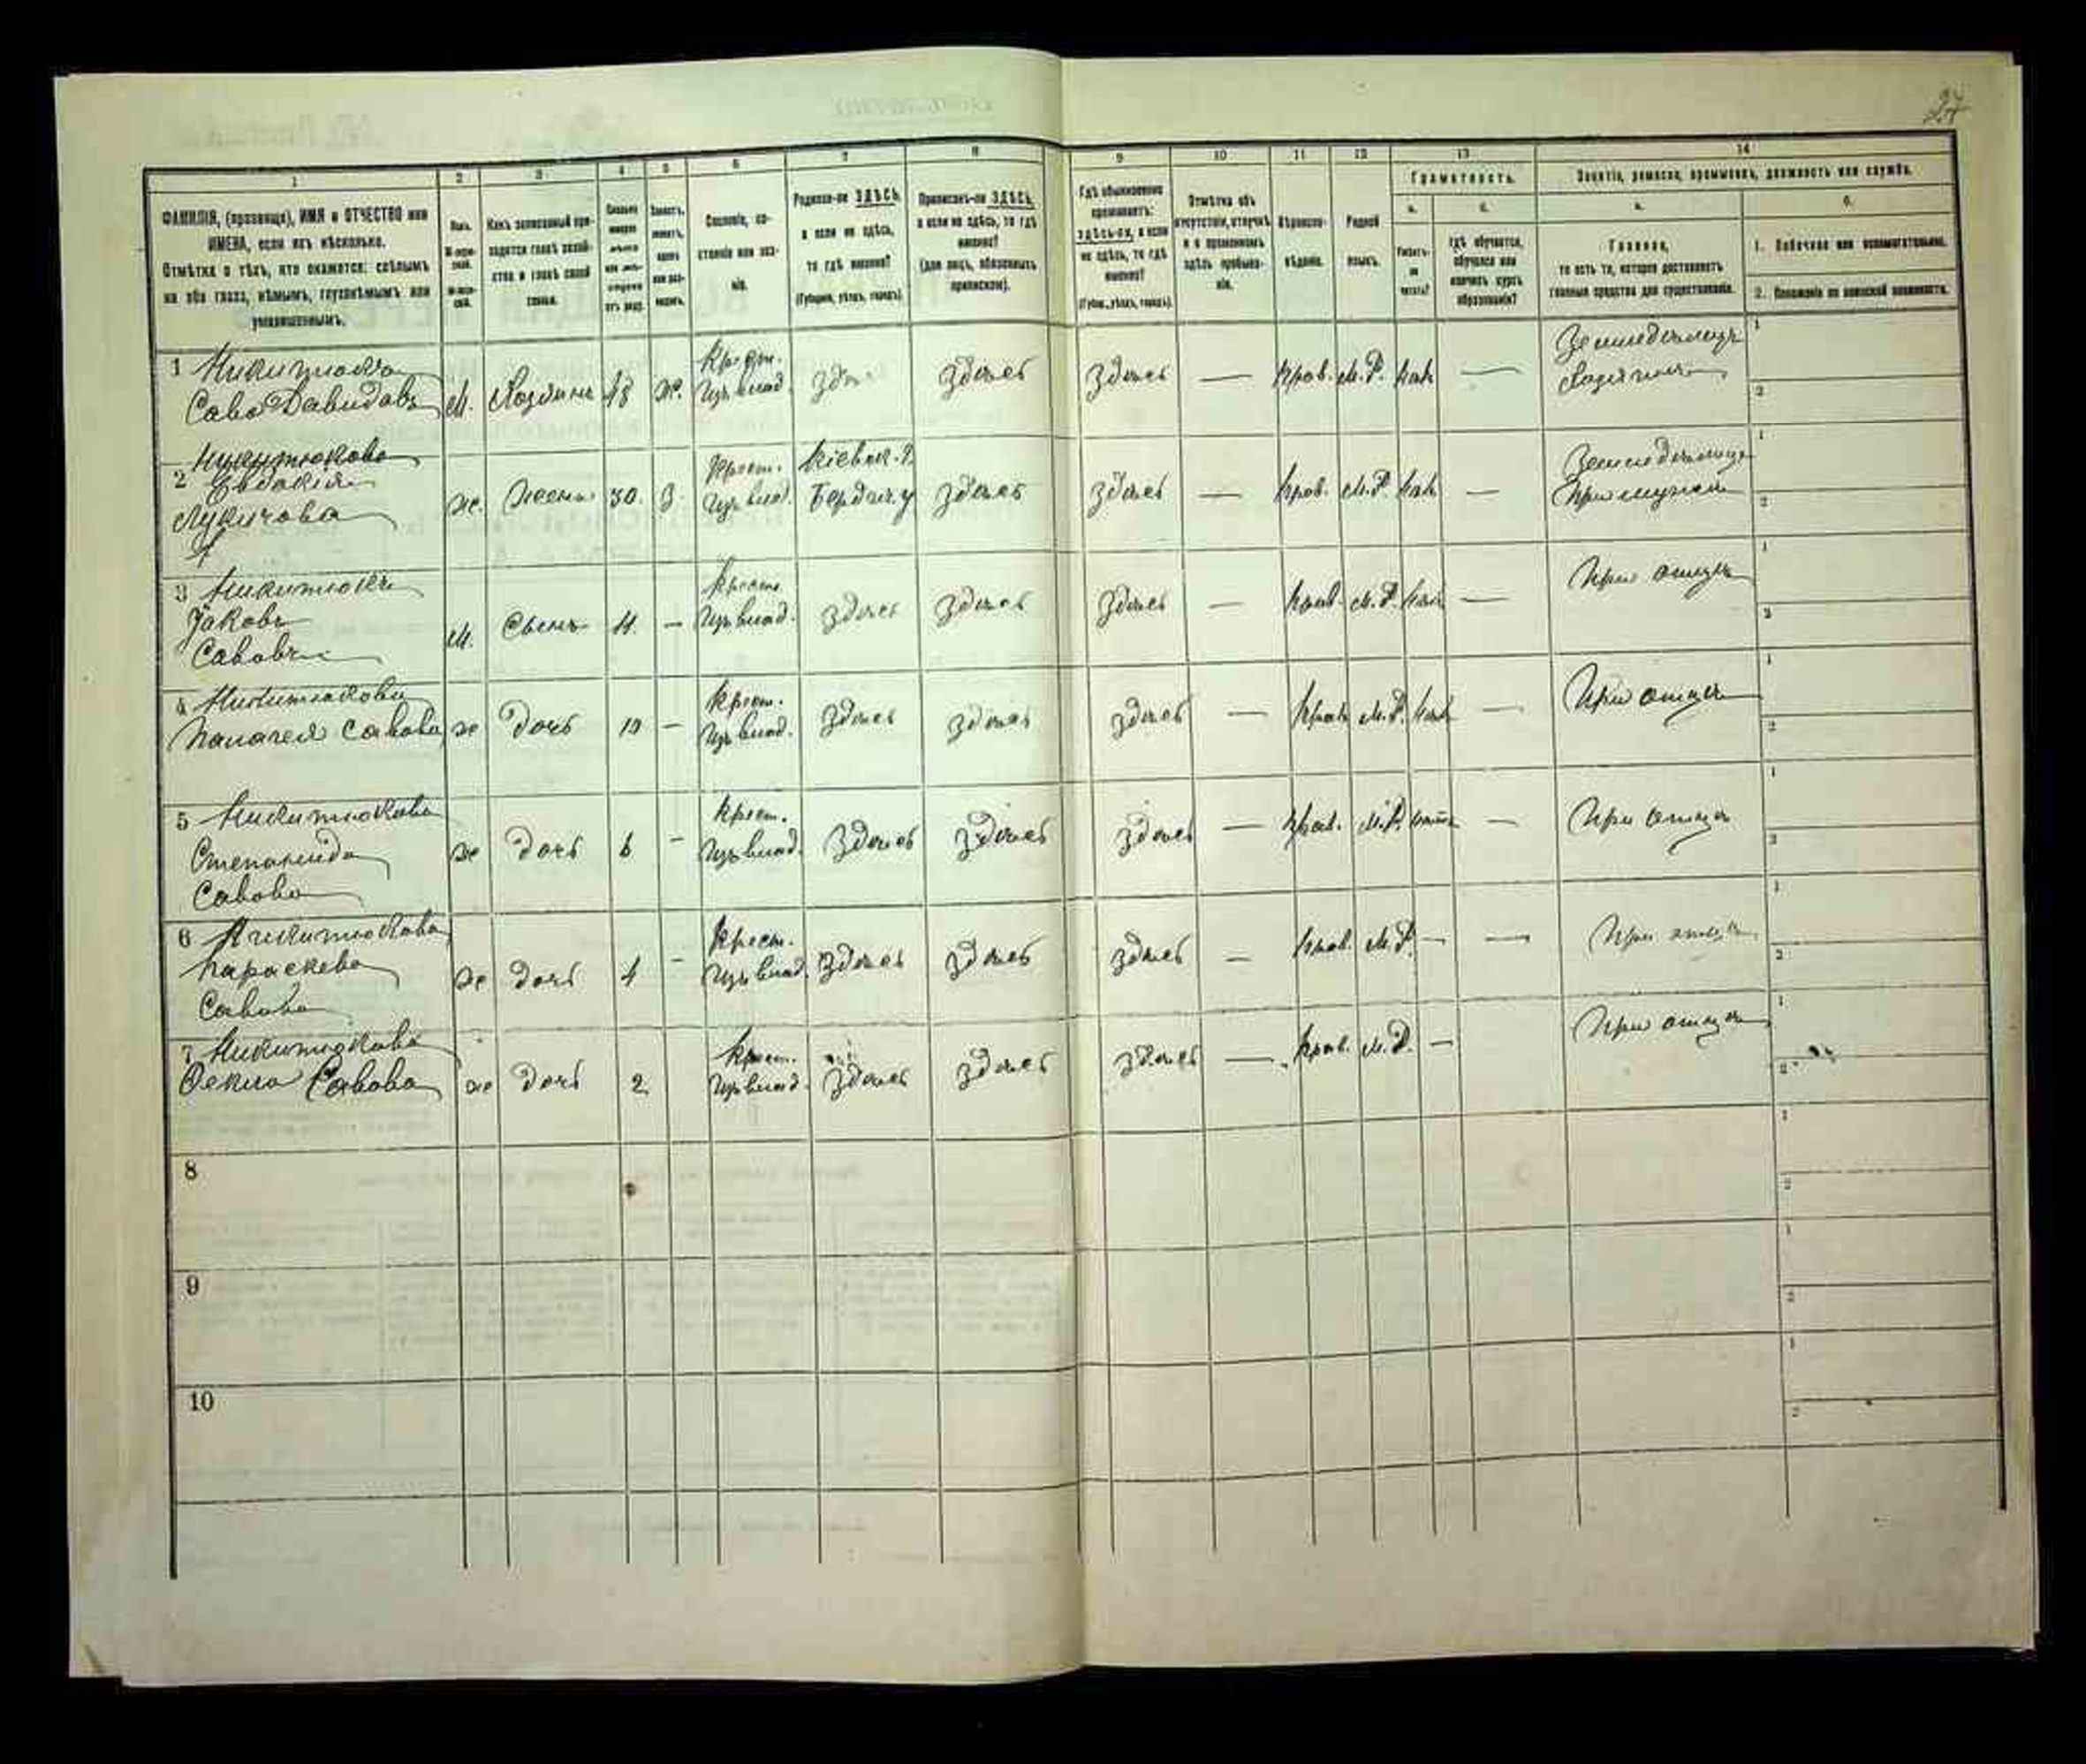 27
1 2 3 4 5 6 7 8 9 10 11 12 13 14
ФАМИЛІЯ, (прозвище), ИМЯ и ОТЧЕСТВО или
ИМЕНА, если ихъ нѣсколько.
Отмѣтка о тѣхъ, кто окажется: слѣпымъ
на оба глаза, нѣмымъ, глухонѣмымъ или
умалишеннымъ.
Полъ.
Какъ записанный при-
ходится главѣ хозяй-
ства и главѣ своей
семьи.
Сословіе, со-
стояніе или зва-
ніе.
Родился-ли ЗДѢСЬ,
а если не здѣсь,
то гдѣ именно?
(Губернія, уѣздъ, городъ).
Приписанъ-ли ЗДѢСЬ,
а если не здѣсь, то гдѣ
именно?
(для лицъ, обязанныхъ
припискою).
Гдѣ обыкновенно
проживаетъ:
здѣсь-ли, а если
не здѣсь, то гдѣ
именно?
(Губерн., уѣздъ, городъ).
Отмѣтка объ
отсутствіи, отлучкѣ
и о временномъ
здѣсь пребыва-
ніи.
Вѣроиспо-
вѣданіе.
Родной
языкъ.
Грамотность.
а. б.
Умѣетъ-
ли
читать?
гдѣ обучается,
обучался или
кончилъ курсъ
образованія?
Занятіе, ремесло, промыселъ, должность или служба.
а. б.
Главное,
то есть то, которое доставляетъ
главныя средства для существованія.
1. Побочное или вспомогательное.
2. Положеніе по воинской повинности.
1 Никитюкъ
Сава Давидовъ м. Хозяинъ 48 ж. Крест. изъ влад. здѣсь здѣсь здѣсь — Прав. М.Р. —
Земледѣлецъ
хозяинъ
2 Никитюкова
Евдокія
Лукичова ж. жена 30 З Крест. изъ влад. Кіевск. г. Бердич. у. здѣсь здѣсь — Прав. М.Р. —
Земледѣлица
При мужѣ
3 Никитюкъ
Яковъ
Савовъ м. Сынъ 11 — Крест. изъ влад. здѣсь здѣсь здѣсь — Прав. М.Р. — При отцѣ
4 Никитюкова
Палагея Савова ж дочь 10 — Крест. изъ влад. здѣсь здѣсь здѣсь — Прав. М.Р. — При отцѣ
5 Никитюкова
Степанида
Савова ж дочь 6 — Крест. изъ влад. здѣсь здѣсь здѣсь — Прав. М.Р. — При отцѣ
6 Никитюкова
Параскева
Савова ж дочь 4 — Крест. изъ влад. здѣсь здѣсь здѣсь — Прав. М.Р. — — При отцѣ
7 Никитюкова
Фекла Савова ж дочь 2 Крест. изъ влад. здѣсь здѣсь здѣсь — Прав. М.Р. — При отцѣ
8
9
10